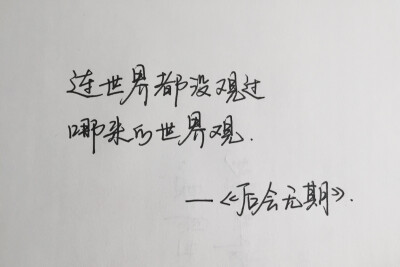 连世界都没观过
哪来的世界观.
—《后会无期》.